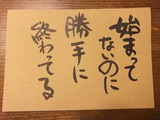 始まって
ないのに
勝手に
終わってる